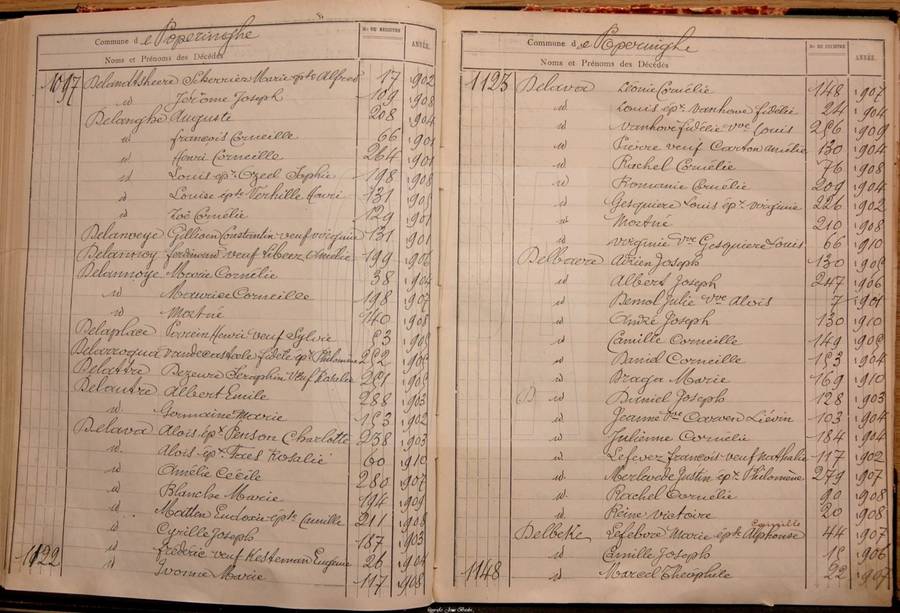 Commune de Poperinghe
Nos DE REGISTRE
ANNÉE.
Noms et Prénoms des Décédés
1097 Delandtsheere Scherrier Marie épte Alfred 17 1902
id Jérôme Joseph 109 1908
Delanghe Auguste 208 1904
id françois Corneille 66 1901
id Henri Corneille 264 1901
id Louis épx Ozeel Sophie 198 1908
id Louise épte Verhille Henri 131
id Zoé Cornélie 129 1901
Delanoeye Gillioen Constantin veuf virginie 131 1901
Delannoy ferdinan veuf Libeer Amélie 199 1906
Delannoye Marie Cornélie 38 1904
id Maurice Corneille 198 1907
id Mortné 140 1908
Delaplace Henri veuf Sylvie 53
fidèle épx Philomène 252
Delattre Dezeure Séraphin veuf Rosalie
Delautre Albert Emile 288 1903
id Germaine Marie 153 1902
Delava Alois épx Penson Charlotte 238 1903
id Alois épx Taes Rosalie 60 1910
id Amélie Cécile 280 1907
id Blanche Marie 194 1909
id Matten Eudoxie épte Camille 211 1908
id Cyrille Joseph 187 1903
id frédéric veuf Kesteman Eugénie 26 1904
1122 id Yvonne Marie 117 1908
Commune de Poperinghe
No DE REGISTRE
ANNÉE.
Noms et Prénoms des Décédés
1123 Delava Léonie Cornélie 148 1907
id Louis épx Vanhove fidélie 24 1904
id Vanhove fidélie vve Louis 256 1909
id Pierre veuf Carton Amélie 130 1904
id Rachel Cornélie 76 1908
id Romanie Cornélie 209 1904
id Gesquiere Louis épx virginie 226 1902
id Mortné 210 1908
id virginie vve Gesquiere Louis 66 1910
Delbaere Adrien Joseph 130
id Albert Joseph 247 1906
id Demol Julie vve Alois 7 1901
id André Joseph 130 1910
id Camille Corneille 149
id David Corneille 153 1904
id Marie 169 1910
id Daniel Joseph 128 1903
id Jeanne vve Liévin 103 1904
id Julienne Cornélie 184 1904
id Lefever françois veuf Nathalie 117 1902
id Merlevede Justin épx Philomène 279 1907
id Rachel Cornélie 90 1908
id Reine Victoire 20 1908
Camille
Delbeke Lefebvre Marie épte Alphonse 44 1907
id Camille Joseph 15 1906
1148 id Marcel Théophile 22 1907